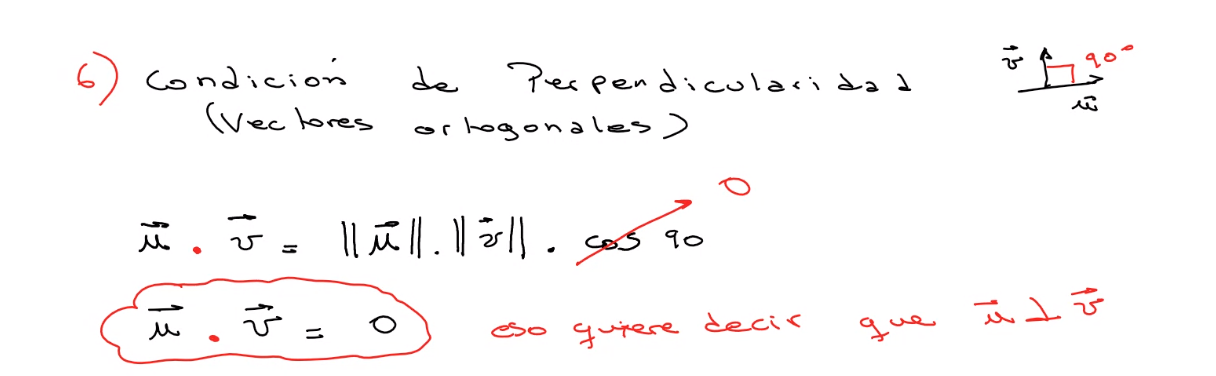 6) Condición de Perpendicularidad
(Vectores ortogonales)
v⃗ 90°
u⃗
u⃗ . v⃗ = ||u⃗|| . ||v⃗|| . cos 90
0
u⃗ . v⃗ = 0 eso quiere decir que u⃗ ⊥ v⃗